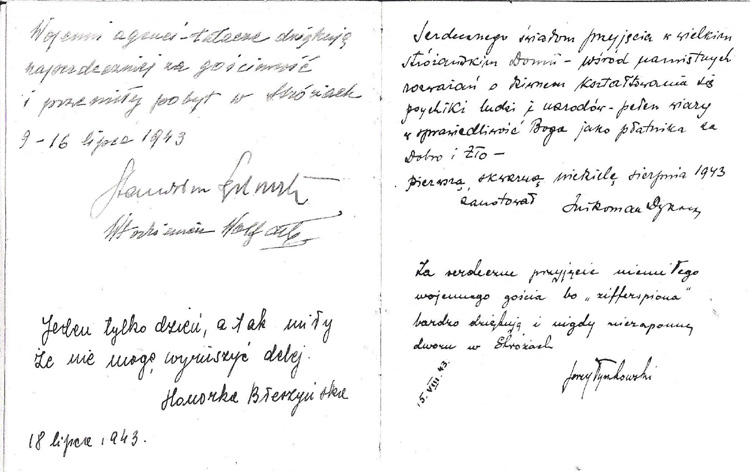 Wojenni agenci-tułacze dziękują
najserdeczniej za gościnność
i przemiły pobyt w Stróżach
9-16 lipca 1943
Stanisław
Włodzimierz
Jeden tylko dzień, a tak miły
że nie mogę wyruszyć dalej.
Honorka Błeszyńska
18 lipca 1943.
Serdecznego świadom przyjęcia w wielkim
Stróżańskim Domu - wśród namiętnych
rozważań o dziwnem kształtowaniu się
psychiki ludzi i narodów - pełen wiary
w sprawiedliwość Boga jako płatnika za
Dobro i Zło -
pierwszą, skwarną niedzielę sierpnia 1943
zanotował
Za serdeczne przyjęcie niemiłego
wojennego gościa bo "zifferspiona"
bardzo dziękuję i nigdy niezapomnę
dworu w Stróżach
15. VIII. 43.
Jerzy